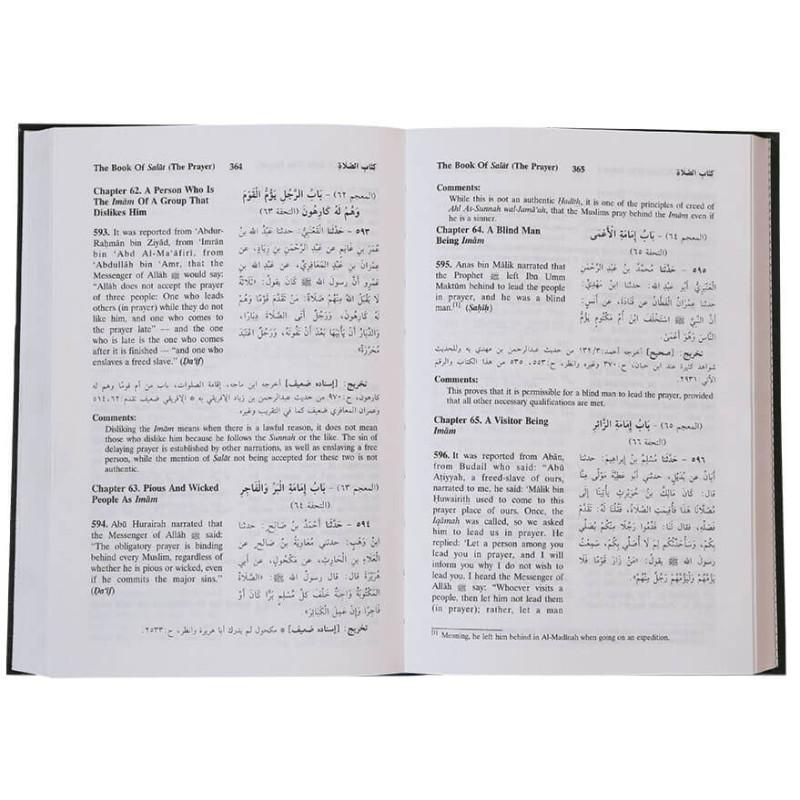 The Book Of Salāt (The Prayer) 364 كتاب الصلاة
Chapter 62. A Person Who Is
The Imām Of A Group That
Dislikes Him
(المعجم ٦٢) - بَابُ الرَّجُلِ يَؤُمُّ الْقَوْمَ
وَهُمْ لَهُ كَارِهُونَ (التحفة ٦٣)
593. It was reported from 'Abdur-
Raḥmān bin Ziyād, from 'Imrān
bin 'Abd Al-Ma'āfirī, from
'Abdullāh bin 'Amr, that the
Messenger of Allāh ﷺ would say:
"Allāh does not accept the prayer
of three people: One who leads
others (in prayer) while they do not
like him, and one who comes to
the prayer late" — and the one
who is late is the one who comes
after it is finished — "and one who
enslaves a freed slave." (Ḍa'īf)
٥٩٣ - حَدَّثَنَا الْقَعْنَبِيُّ: حَدَّثَنَا عَبْدُ الله بنُ
عُمَرَ بنِ غَانِمٍ عن عَبْدِ الرَّحْمَنِ بنِ زِيَادٍ، عن
عِمْرَانَ بنِ عَبْدٍ المَعَافِرِيِّ، عن عَبْدِ الله بنِ
عَمْرٍو أَنَّ رسولَ الله ﷺ كَانَ يقولُ: «ثَلَاثَةٌ
لَا يَقْبَلُ الله مِنْهُمْ صَلَاةً: مَنْ تَقَدَّمَ قَوْمًا وَهُمْ
لَهُ كَارِهُونَ، وَرَجُلٌ أَتَى الصَّلَاةَ دِبَارًا،
وَالدِّبَارُ أَنْ يَأْتِيَهَا بَعْدَ أَنْ تَفُوتَهُ، وَرَجُلٌ اعْتَبَدَ
مُحَرَّرَهُ».
تخريج: [إسناده ضعيف] أخرجه ابن ماجه، إقامة الصلوات، باب من أم قومًا وهم له
كارهون، ح:٩٧٠ من حديث عبدالرحمن بن زياد الإفريقي به * الإفريقي ضعيف تقدم:٥١٤،٦٢
وعمران المعافري ضعيف كما في التقريب وغيره.
Comments:
Disliking the Imām means when there is a lawful reason, it does not mean
those who dislike him because he follows the Sunnah or the like. The sin of
delaying prayer is established by other narrations, as well as enslaving a free
person, while the mention of Salāt not being accepted for these two is not
authentic.
Chapter 63. Pious And Wicked
People As Imām
(المعجم ٦٣) - بَابُ إِمَامَةِ الْبَرِّ وَالْفَاجِرِ
(التحفة ٦٤)
594. Abū Hurairah narrated that
the Messenger of Allāh ﷺ said:
"The obligatory prayer is binding
behind every Muslim, regardless of
whether he is pious or wicked, even
if he commits the major sins."
(Ḍa'īf)
٥٩٤ - حَدَّثَنَا أَحْمَدُ بنُ صَالحٍ: حدثنا
ابنُ وَهْبٍ: حدثني مُعَاوِيَةُ بنُ صَالحٍ عن
الْعَلَاءِ بنِ الْحَارِثِ، عن مَكْحُولٍ، عن أَبِي
هُرَيْرَةَ قال: قال رسولُ الله ﷺ: «الصَّلَاةُ
المَكْتُوبَةُ وَاجِبَةٌ خَلْفَ كلِّ مُسْلِمٍ بَرًّا كَانَ أَوْ
فَاجِرًا وَإِنْ عَمِلَ الْكَبَائِرَ».
تخريج: [إسناده ضعيف] * مكحول لم يدرك أبا هريرة وانظر، ح:٢٥٣٣.
The Book Of Salāt (The Prayer) 365 كتاب الصلاة
Comments:
While this is not an authentic Ḥadīth, it is one of the principles of creed of
Ahl As-Sunnah wal-Jamā'ah, that the Muslims pray behind the Imām even if
he is a sinner.
Chapter 64. A Blind Man
Being Imām
(المعجم ٦٤) - بَابُ إِمَامَةِ الْأَعْمَى
(التحفة ٦٥)
595. Anas bin Mālik narrated that
the Prophet ﷺ left Ibn Umm
Maktūm behind to lead the people
in prayer, and he was a blind
man.[1] (Ṣaḥīḥ)
٥٩٥ - حَدَّثَنَا مُحَمَّدُ بنُ عَبْدِ الرَّحْمَنِ
الْعَنْبَرِيُّ أَبُو عَبْدِ الله: حدثنا ابنُ مَهْدِيٍّ:
حدثنا عِمْرَانُ الْقَطَّانُ عن قَتَادَةَ، عن أَنَسٍ:
أَنَّ النَّبيَّ ﷺ اسْتَخْلَفَ ابنَ أُمِّ مَكْتُومٍ يَؤُمُّ
النَّاسَ وَهُوَ أَعْمَى.
تخريج: [صحيح] أخرجه أحمد:٣/١٣٢ من حديث عبدالرحمن بن مهدي به وللحديث
شواهد كثيرة عند ابن حبان، ح:٣٧٠ وغيره وانظر، ح:٥٥٣، ٥٣٥ من هذا الكتاب والرقم
الآتي ٢٩٣١.
Comments:
This proves that it is permissible for a blind man to lead the prayer, provided
that all other necessary qualifications are met.
Chapter 65. A Visitor Being
Imām
(المعجم ٦٥) - بَابُ إِمَامَةِ الزَّائِرِ
(التحفة ٦٦)
596. It was reported from Abān,
from Budail who said: "Abū
Aṭiyyah, a freed-slave of ours,
narrated to me, he said: 'Mālik bin
Ḥuwairith used to come to this
prayer place of ours. Once, the
Iqāmah was called, so we asked
him to lead us in prayer. He
replied: 'Let a person among you
lead you in prayer, and I will
inform you why I do not wish to
lead you. I heard the Messenger of
Allāh ﷺ say: "Whoever visits a
people, then let him not lead them
(in prayer); rather, let a man
٥٩٦ - حَدَّثَنَا مُسْلِمُ بنُ إِبراهِيمَ: حدثنا
أَبَانُ عن بُدَيْلٍ، حدثني أَبُو عَطِيَّةَ مَوْلًى مِنَّا
قال: كَانَ مَالِكُ بنُ حُوَيْرِثٍ يأْتِينَا إِلَى
مُصَلَّانَا هَذَا فأُقِيمَتِ الصَّلَاةُ، فَقُلْنَا لَهُ: تَقَدَّمْ
فَصَلِّهِ، فقال لَنَا: قَدِّمُوا رَجُلًا مِنْكُم يُصَلِّي
بِكُم، وَسَأُحَدِّثُكُم لِمَ لَا أُصَلِّي بِكُم، سَمِعْتُ
رسولَ الله ﷺ يقولُ: «مَنْ زَارَ قَوْمًا فَلَا
يَؤُمَّهُمْ وَلْيَؤُمَّهُمْ رَجُلٌ مِنْهُمْ».
[1] Meaning, he left him behind in Al-Madīnah when going on an expedition.